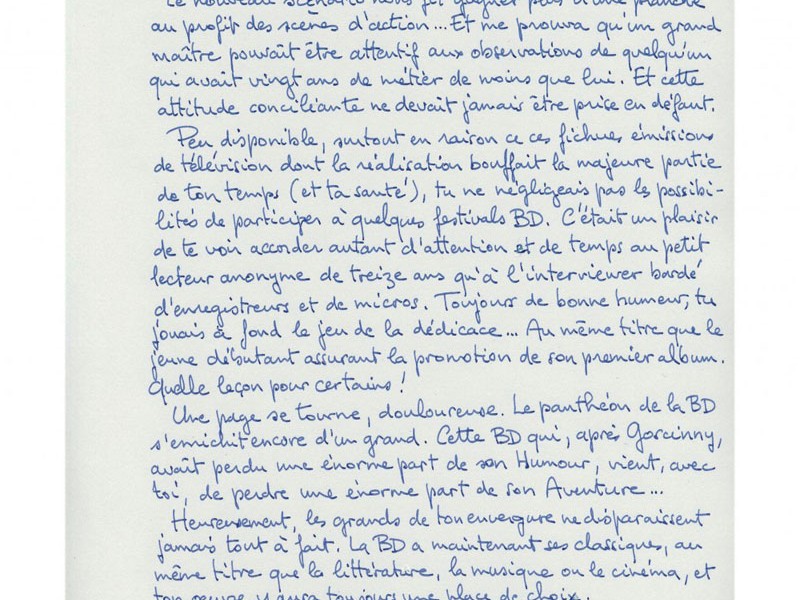 Le nouveau scénario nous fit gagner plus d'une planche
au profit des scènes d'action... Et me prouva qu'un grand
maître pouvait être attentif aux observations de quelqu'un
qui avait vingt ans de métier de moins que lui. Et cette
attitude conciliante ne devait jamais être prise en défaut.
Peu disponible, surtout en raison ce ces fichues émissions
de télévision dont la réalisation bouffait la majeure partie
de ton temps (et ta santé), tu ne négligeais pas les possibi-
lités de participer à quelques festivals BD. C'était un plaisir
de te voir accorder autant d'attention et de temps au petit
lecteur anonyme de treize ans qu'à l'interviewer bardé
d'enregistreurs et de micros. Toujours de bonne humeur, tu
jouais à fond le jeu de la dédicace... Au même titre que le
jeune débutant assurant la promotion de son premier album.
Quelle leçon pour certains !
Une page se tourne, douloureuse. Le panthéon de la BD
s'enrichit encore d'un grand. Cette BD qui, après Goscinny,
avait perdu une énorme part de son Humour, vient, avec
toi, de perdre une énorme part de son Aventure...
Heureusement, les grands de ton envergure ne disparaissent
jamais tout à fait. La BD a maintenant ses classiques, au
même titre que la littérature, la musique ou le cinéma, et
ton oeuvre y aura toujours une place de choix.